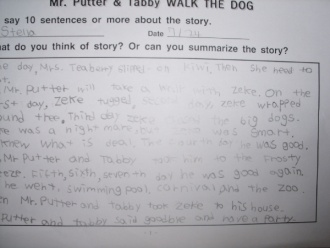 Mr. Putter & Tabby WALK THE DOG
say 10 sentences or more about the story.
Stella Date
at do you think of story? Or can you summarize the story?
e day, Mrs. Teaberry slipped on kiwi, Then she need to
Mr. Putter will take a walk with zeke. On the
st day, zeke tugged, day zeke wrapped
und tree, Third day zeke the big dogs.
e was a nightmare, but was smart.
knew what is deal, The fourth day he was good.
Mr Putter and Tabby him to the Frosty
Fifth, sixth, seventh day he was good again.
he went, swimming pool, carnival, and the zoo.
n Mr. Putter and Tabby took zeke to his house.
Putter and tabby said goodbye and have a Party.